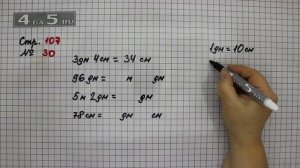 4 GDZ 5.RU
Стр. 107
№ 30
3дм 4см = 34 см
96 дм = м дм
5м 2дм = дм
78см = дм см
1дм = 10см